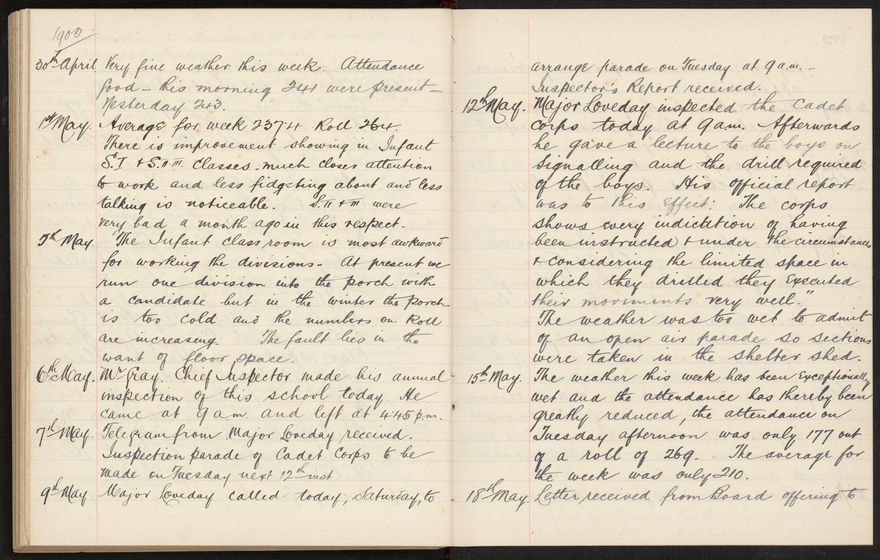 1903
30th April Very fine weather this week. Attendance
good - this morning 244 were present -
Yesterday 243.
1st May. Average for week 237.4 Roll 264.
There is improvement showing in Infant
St. I & S. II III Classes - much closer attention
to work and less fidgeting about and less
talking is noticeable. S. II & III were
very bad a month ago in this respect.
5th May. The Infant class room is most awkward
for working the divisions - At present we
run one division into the porch with
a candidate but in the winter the porch
is too cold and the numbers on Roll
are increasing. The fault lies in the
want of floor space.
6th May. Mr Gray. Chief Inspector made his annual
inspection of this school today. He
came at 9 a.m. and left at 4.45 p.m.
7th May. Telegram from Major Loveday received.
Inspection parade of Cadet Corps to be
made on Tuesday next 12th inst
9th May Major Loveday called today, Saturday, to
arrange parade on Tuesday at 9 a.m. -
Inspector's Report received.
12th May. Major Loveday inspected the Cadet
Corps today at 9 am. Afterwards
he gave a lecture to the boys on
Signalling and the drill required
of the boys. His official report
was to this effect: "The corps
shows every indictition of having
been instructed & under the circumstances
& considering the limited space in
which they drilled they executed
their movements very well."
The weather was too wet to admit
of an open air parade so sections
were taken in the shelter shed.
15th May. The weather this week has been exceptionally
wet and the attendance has thereby been
greatly reduced, the attendance on
Tuesday afternoon was only 177 out
of a roll of 269. The average for
the week was only 210.
18th May. Letter received from Board offering to